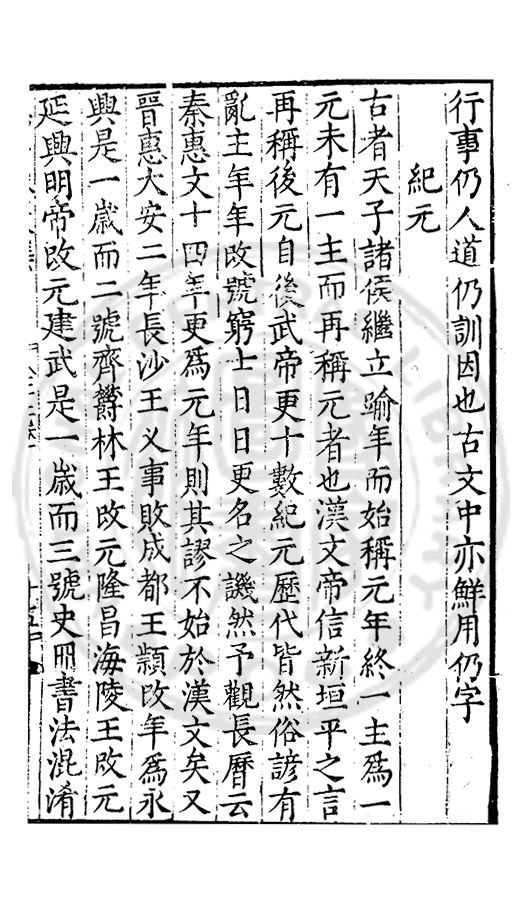 行事仍人道仍訓因也古文中亦鮮用仍字
紀元
古者天子諸侯繼立踰年而始稱元年終一主爲一
元未有一主而再稱元者也漢文帝信新垣平之言
再稱後元自後武帝更十數紀元歷代皆然俗諺有
亂主年年改號窮士日日更名之譏然予觀長曆云
秦惠文十四年更爲元年則其謬不始於漢文矣又
晉惠大安二年長沙王乂事敗成都王顒改年爲永
興是一歲而二號齊欝林王改元隆昌海陵王改元
延興明帝改元建武是一歲而三號史冊書法混淆